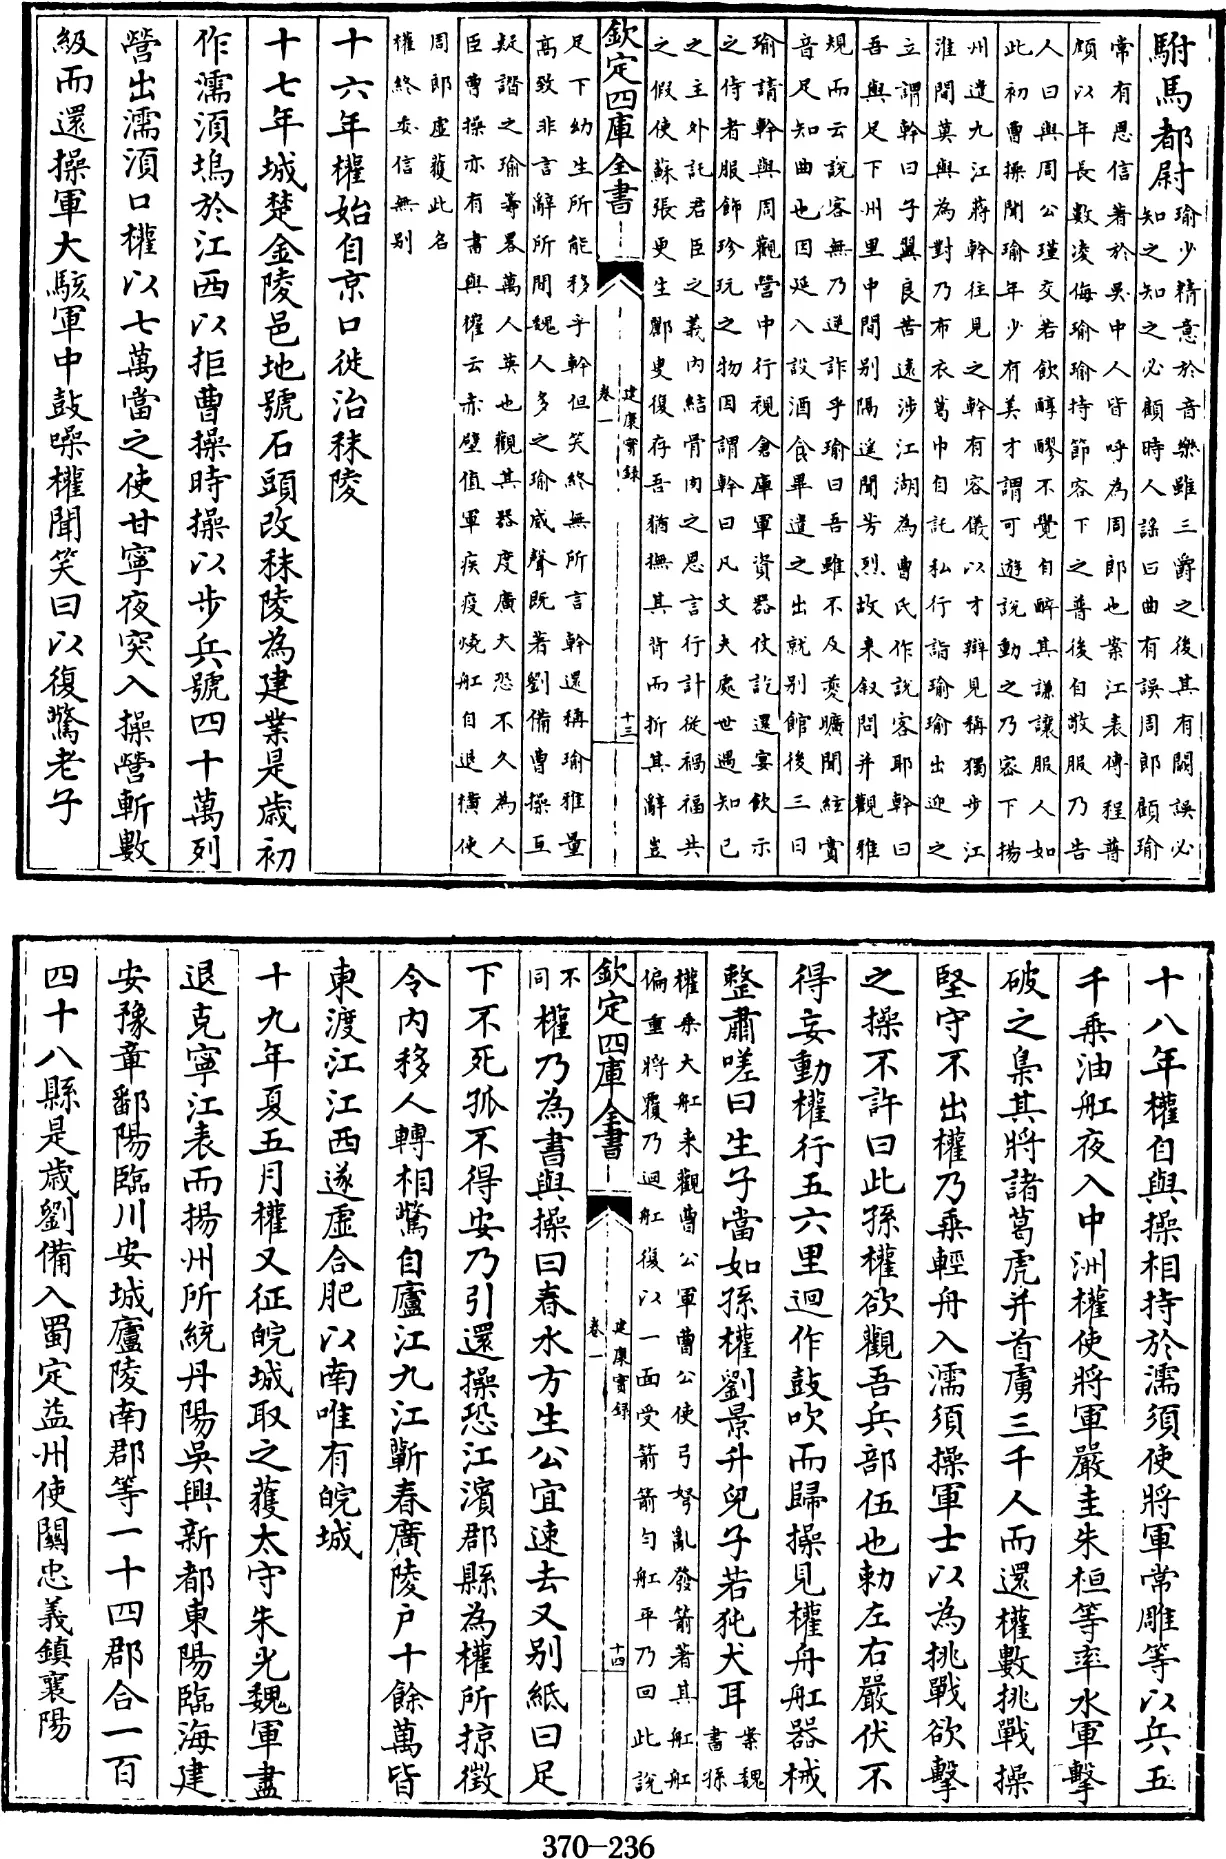 駙馬都尉
瑜少精意於音樂雖三爵之後其有闕誤必
知之知之必顧時人謠曰曲有誤周郎顧瑜
常有恩信著於吳中人皆呼為周郎也案江表傳程普
頗以年長數凌侮瑜瑜持節容下之普後自敬服乃告
人曰與周公瑾交若飲醇醪不覺自醉其謙讓服人如
此初曹操聞瑜年少有美才謂可遊說動之乃密下揚
州遣九江蔣幹往見之幹有容儀以才辯見稱獨步江
淮間莫與為對乃布衣葛巾自託私行詣瑜瑜出迎之
立謂幹曰子翼良苦遠涉江湖為曹氏作說客耶幹曰
吾與足下州里中間别隔遥聞芳烈故来叙問并觀雅
規而云說客無乃逆詐乎瑜曰吾雖不及夔曠聞絃賞
音足知曲也因延入設酒食畢遣之出就别館後三日
瑜請幹與周觀營中行視倉庫軍資器仗訖還宴飲示
之侍者服飾珍玩之物因謂幹曰凡丈夫處世遇知己
之主外託君臣之義内結骨肉之恩言行計從禍福共
之假使蘇張更生酈叟復存吾猶撫其背而折其辭豈
欽定四庫全書
建康實録
卷一
十三
足下幼生所能移乎幹但笑終無所言幹還稱瑜雅量
高致非言辭所間魏人多之瑜威聲既著劉備曹操互
疑譖之瑜等畧萬人英也觀其器度廣大恐不久為人
臣曹操亦有書與權云赤壁值軍疾疫燒舡自退橫使
周郎虛獲此名
權終委信無别
十六年權始自京口徙治秣陵
十七年城楚金陵邑地號石頭改秣陵為建業是歲初
作濡湏塢於江西以拒曹操時操以步兵號四十萬列
營出濡湏口權以七萬當之使甘寧夜突入操營斬數
級而還操軍大駭軍中鼓噪權聞笑曰以復驚老子
十八年權自與操相持於濡須使將軍常雕等以兵五
千乘油舡夜入中洲權使將軍嚴圭朱桓等率水軍擊
破之梟其將諸葛虎并首虜三千人而還權數挑戰操
堅守不出權乃乘輕舟入濡須操軍士以為挑戰欲擊
之操不許曰此孫權欲觀吾兵部伍也勅左右嚴伏不
得妄動權行五六里迴作鼓吹而歸操見權舟舡器械
整肅嗟曰生子當如孫權劉景升兒子若㹠犬耳
案魏
書孫
權乘大舡来觀曹公軍曹公使弓弩亂發箭著其舡舡
偏重將覆乃迴舡復以一面受箭箭勻舡平乃回此說
欽定四庫全書
建康實録
卷一
十四
不
同
權乃為書與操曰春水方生公宜速去又别紙曰足
下不死孤不得安乃引還操恐江濱郡縣為權所掠徴
令内移人轉相驚自廬江九江蘄春廣陵户十餘萬皆
東渡江江西遂虛合肥以南唯有皖城
十九年夏五月權又征皖城取之獲太守朱光魏軍盡
退克寧江表而揚州所統丹陽吳興新都東陽臨海建
安豫章鄱陽臨川安城廬陵南郡等一十四郡合一百
四十八縣是歲劉備入蜀定益州使關忠義鎮襄陽
370-236